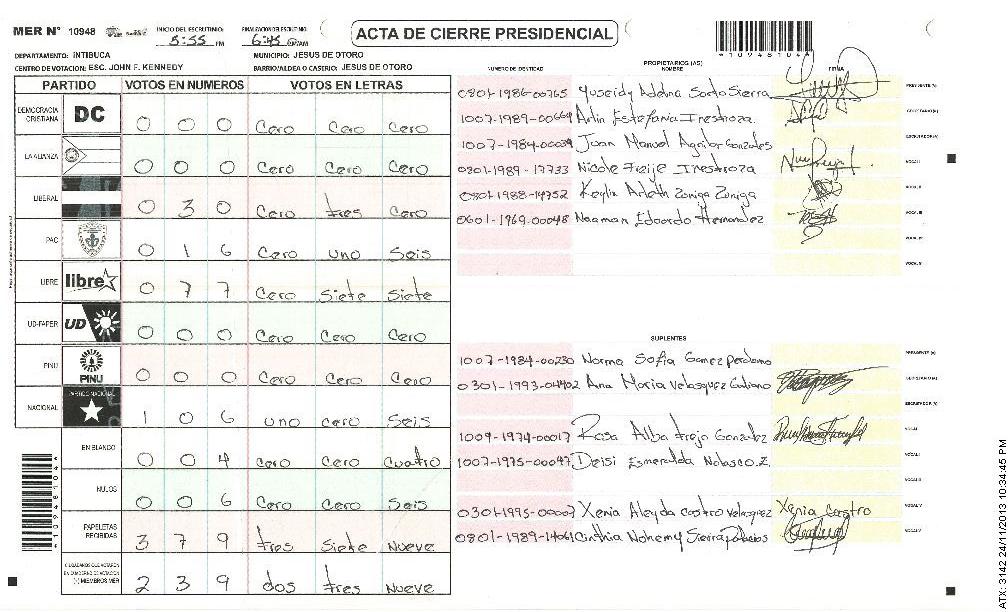 MER N° 10948 INICIO DEL ESCRUTINIO: 5:55 PM FINALIZACION DEL ESCRUTINIO: 6:45 PM/AM
ACTA DE CIERRE PRESIDENCIAL
*10948104*
DEPARTAMENTO: INTIBUCA MUNICIPIO: JESUS DE OTORO
CENTRO DE VOTACION: ESC. JOHN F. KENNEDY BARRIO/ALDEA O CASERIO: JESUS DE OTORO
PARTIDO VOTOS EN NUMEROS VOTOS EN LETRAS
DEMOCRACIA CRISTIANA DC 0 0 0 Cero Cero Cero
LA ALIANZA 0 0 0 Cero Cero Cero
LIBERAL 0 3 0 Cero tres Cero
PAC 0 1 6 Cero uno Seis
LIBRE libre 0 7 7 Cero Siete Siete
UD-FAPER UD 0 0 0 Cero Cero Cero
PINU PINU 0 0 0 Cero Cero Cero
NACIONAL PARTIDO NACIONAL 1 0 6 uno cero Seis
EN BLANCO 0 0 4 Cero Cero Cuatro
NULOS 0 0 6 Cero Cero Seis
PAPELETAS RECIBIDAS 3 7 9 tres Siete Nueve
CIUDADANOS QUE VOTARON EN CUADERNO DE VOTACION (+) MIEMBROS MER 2 3 9 dos tres Nueve
*10948104*
PROPIETARIOS (AS)
NUMERO DE IDENTIDAD NOMBRE FIRMA
0801-1986-00765 Yuseidy Adelina Sorto Sierra PRESIDENTE (A)
1007-1989-00664 Arlin Estefania Inestroza SECRETARIO (A)
1007-1984-00039 Juan Manuel Aguilar Gonzales ESCRUTADOR (A)
0801-1989-17733 Nicole Freije Inestroza VOCAL I
0801-1988-14752 Keylin Arleth Zuniga Zuniga VOCAL II
0601-1969-00048 Naaman Edoardo Hernandez VOCAL III
VOCAL IV
VOCAL V
SUPLENTES
1007-1984-00230 Norma Sofia Gomez Perdomo PRESIDENTE (A)
0301-1993-04402 Ana Maria Velasquez Galiano SECRETARIO (A)
ESCRUTADOR (A)
1009-1974-00017 Rosa Alba Trejo Gonzalez VOCAL I
1007-1975-00047 Deisi Esmeralda Nolasco Z. VOCAL II
VOCAL III
0301-1995-00007 Xenia Aleyda Castro Velasquez Xenia Castro VOCAL IV
0801-1989-14061 Cinthia Nohemy Sierra Palacios VOCAL V
ATX: 3142 24/11/2013 10:34:45 PM